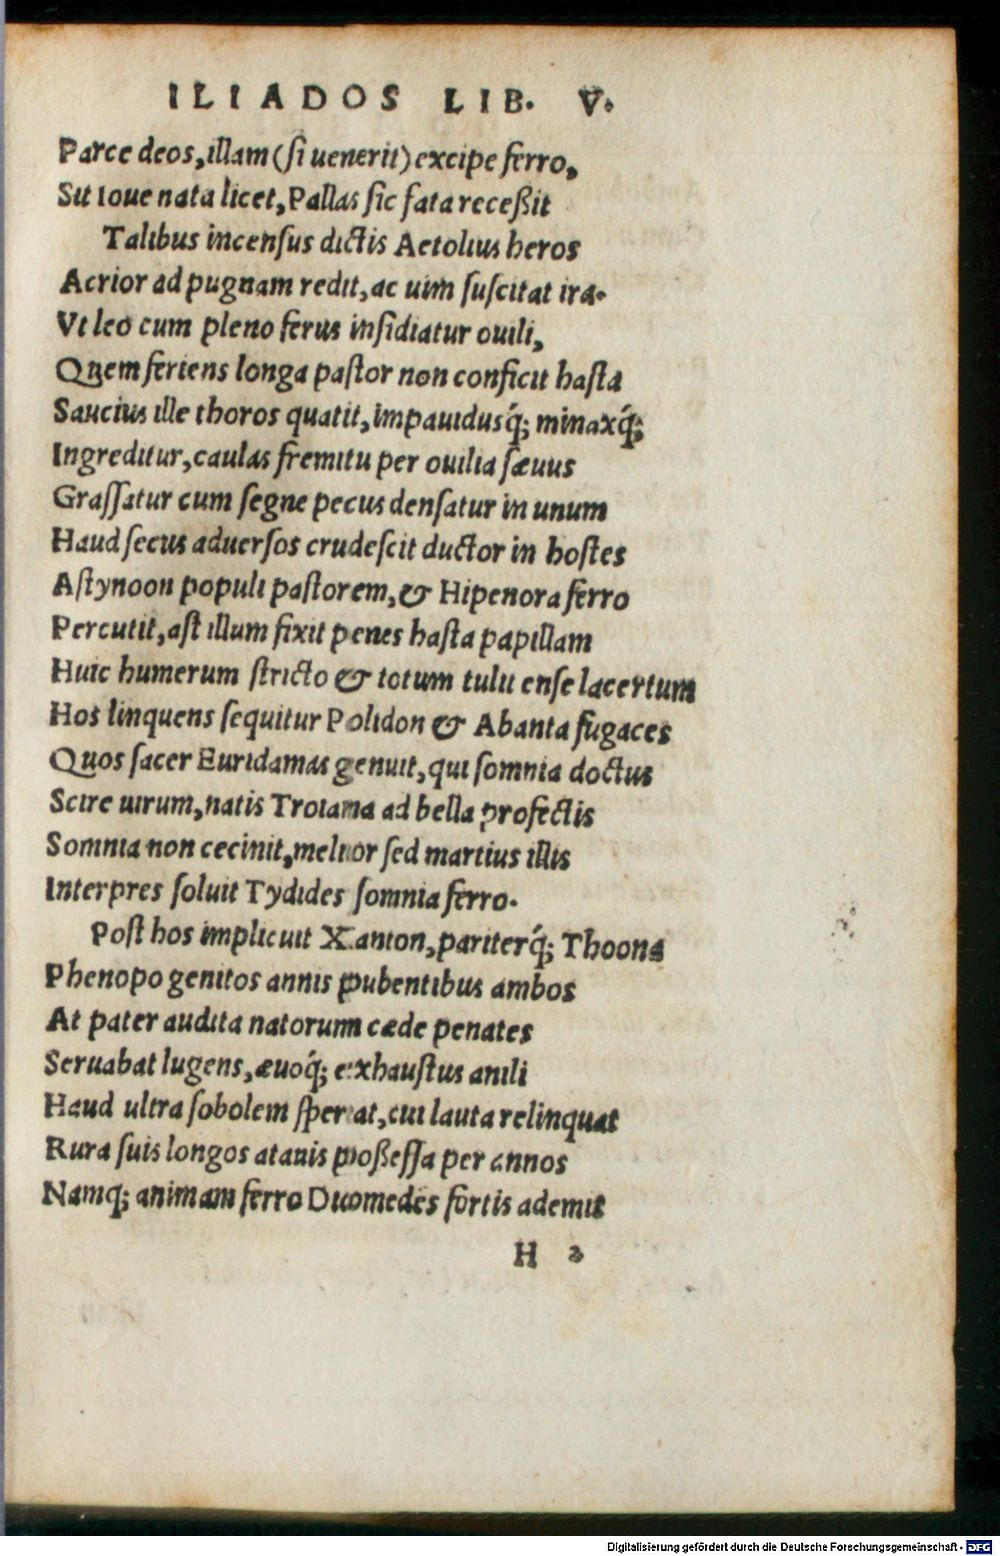 ILIADOS LIB. V.
Parce deos, illam (ſi uenerit) excipe ferro,
Sit Ioue nata licet, Pallas ſic fata receßit
Talibus incenſus dictis Aetolius heros
Acrior ad pugnam redit, ac uim ſuſcitat ira.
Vt leo cum pleno ferus inſidiatur ouili,
Quem feriens longa paſtor non conficit haſta
Saucius ille thoros quatit, impauidusq́; minaxq́;
Ingreditur, caulas fremitu per ouilia ſæuus
Graſſatur cum ſegne pecus denſatur in unum
Haud ſecus aduerſos crudeſcit ductor in hoſtes
Aſtynoon populi paſtorem, & Hipenora ferro
Percutit, aſt illum fixit penes haſta papillam
Huic humerum ſtricto & totum tulit enſe lacertum
Hos linquens ſequitur Polidon & Abanta fugaces
Quos ſacer Euridamas genuit, qui ſomnia doctus
Scire uirum, natis Troiana ad bella profectis
Somnia non cecinit, melior ſed martius illis
Interpres ſoluit Tydides ſomnia ferro.
Poſt hos implicuit Xanton, pariterq́; Thoona
Phenopo genitos annis pubentibus ambos
At pater audita natorum cæde penates
Seruabat lugens, æuoq́; exhauſtus anili
Haud ultra ſobolem ſperat, cui lauta relinquat
Rura ſuis longos atauis poßeſſa per annos
Namq; animam ferro Diomedes fortis ademit
H 2
Digitalisierung gefördert durch die Deutsche Forschungsgemeinschaft - DFG